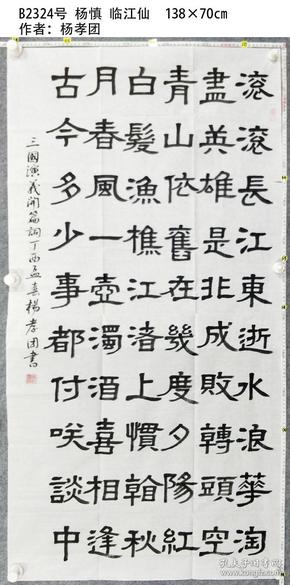 B2324号 杨慎 临江仙 138×70cm
作者：杨孝团
滚滚長江東逝水浪華淘
盡英雄是北成敗轉頭空
青山依舊在幾度夕陽紅
白髮漁樵江渚上慣看秋
月春風一壺濁酒喜相逢
古今多少事都付咲談中
三國演義開篇詞丁酉孟春楊孝团書